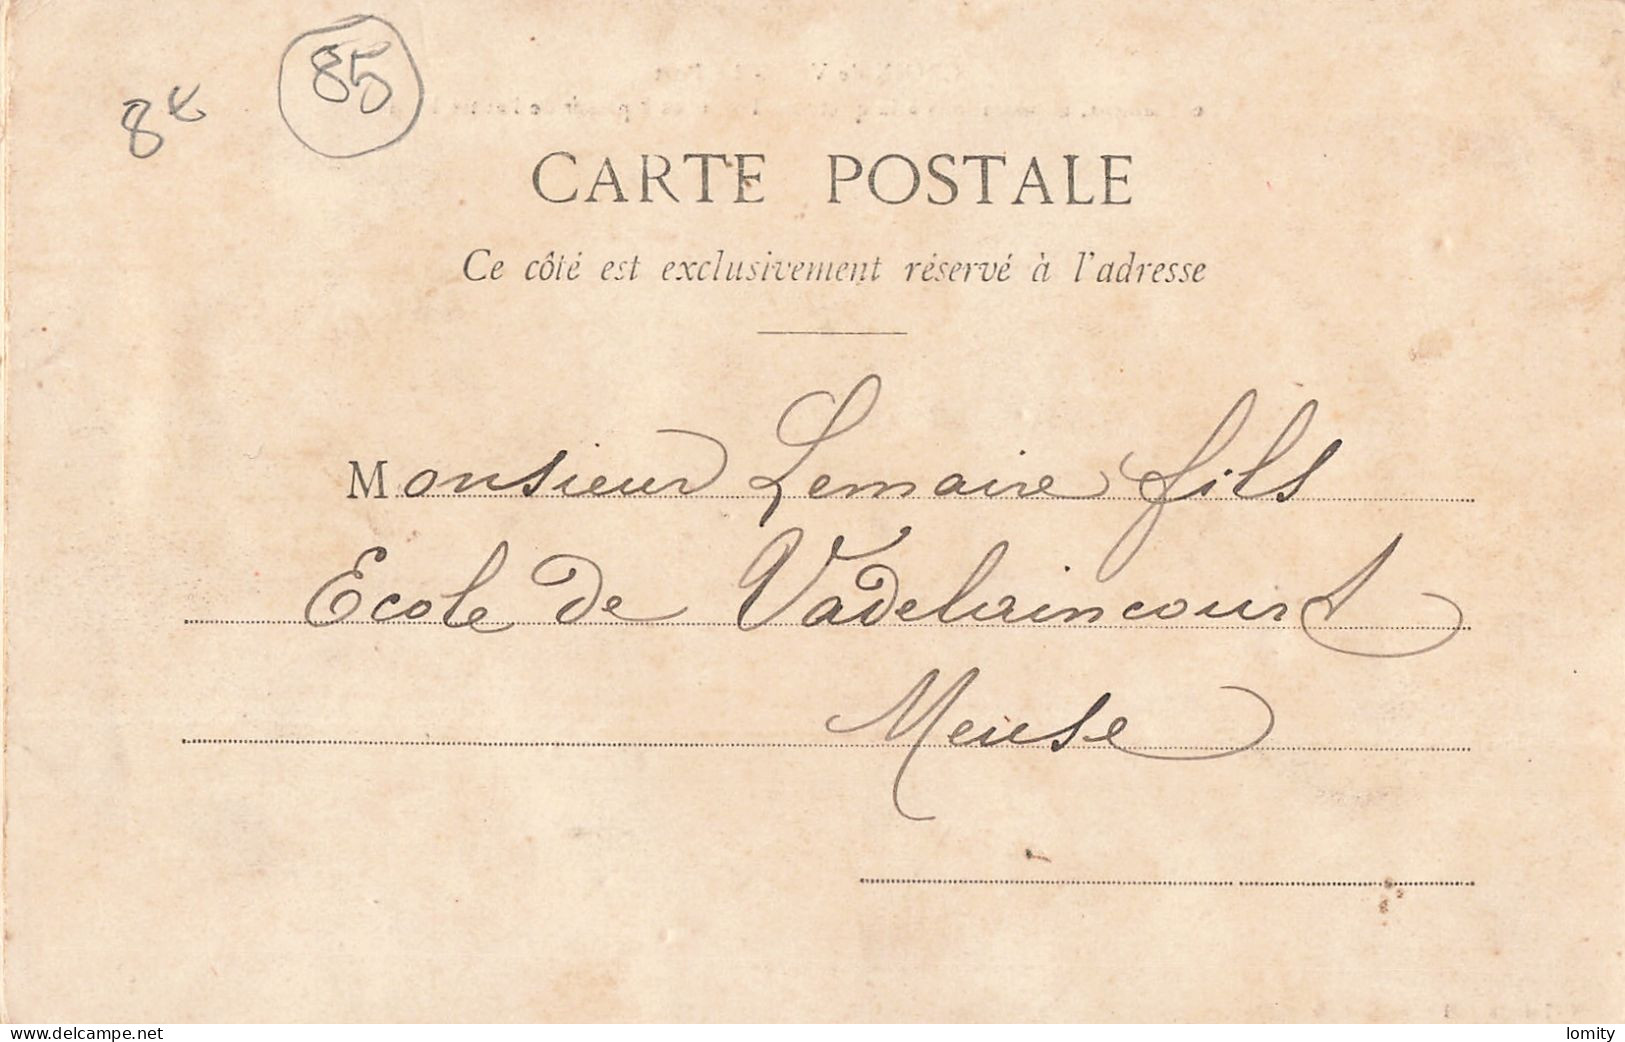 85
8€
CARTE POSTALE
Ce côté est exclusivement réservé à l'adresse
Monsieur Lemaire fils
Ecole de Vadelaincourt
Meuse
www.delcampe.net
lomity